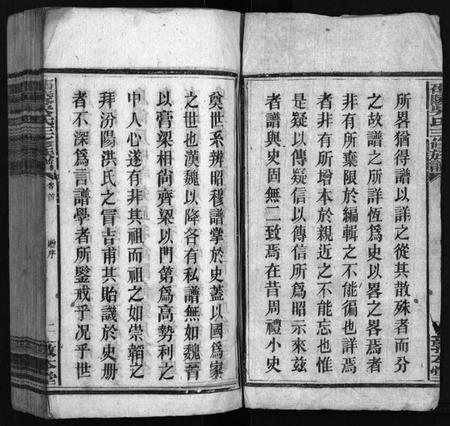 所畧猶得譜以詳之從其散殊者而分
之故譜之所詳恆爲史以畧之畧焉者
非有所棄限於編輯之不能徧也詳焉
者非有所增本於親近之不能忘也惟
是疑以傳疑信以傳信所爲昭示來兹
者譜與史固無二致焉在昔周禮小史
奠世系辨昭穆譜掌於史蓋以國爲家
之世也漢魏以降各有私譜無如魏晉
以膏粱相尚齊梁以門第爲高勢利之
中人心遂有非其祖而祖之如崇韜之
拜汾陽洪氏之冒吉甫其貽譏於史册
者不深爲言譜學者所鑒戒乎况乎世
氏三修族譜
卷首
贈序
二